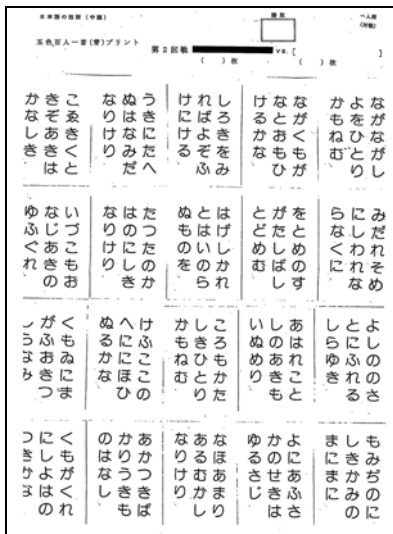 五色百人一首(青)プリント
第2回戦 vs.[ ]
( )枚 ( )枚
勝敗
一人用
(対戦)
ながながし
よをひとり
かもねむ
ながくもが
なとおもひ
けるかな
しろきをみ
ればよぞふ
けにける
うきにたへ
ぬはなみだ
なりけり
こゑきくと
きぞあきは
かなしき
みだれそめ
にしわれな
らなくに
をとめのす
がたしばし
とどめむ
はげしかれ
とはいのら
ぬものを
たつたのか
はのにしき
なりけり
いづこもお
なじあきの
ゆふぐれ
よしののさ
とにふれる
しらゆき
あはれこと
しのあきも
いぬめり
ころもかた
しきひとり
かもねむ
けふここの
へににほひ
ぬるかな
くもゐにま
がふおきつ
しらなみ
もみぢのに
しきかみの
まにまに
よにあふさ
かのせきは
ゆるさじ
なほあまり
あるむかし
なりけり
あかつきば
かりうきも
のはなし
くもがくれ
にしよはの
つきかな